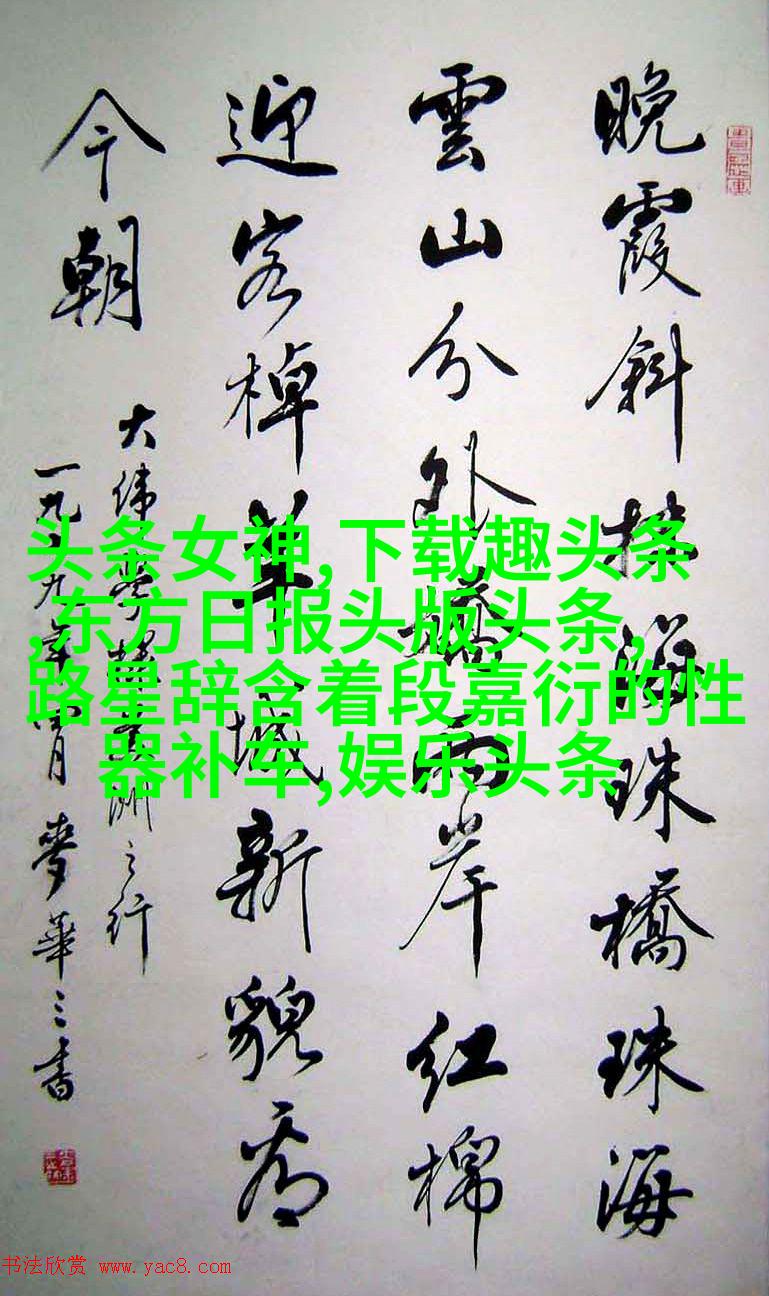 晚霞斜掛海珠橋珠海
雲山分外嬌兩岸紅棉
迎客棹羊城新貌看
今朝
大偉學棣美洲之行
一九七九年 麥華三書
头条女神,下载趣头条
,东方日报头版头条,
路星辞含着段嘉衍的性
器补车,娱乐头条
书法欣赏 www.yac8.com